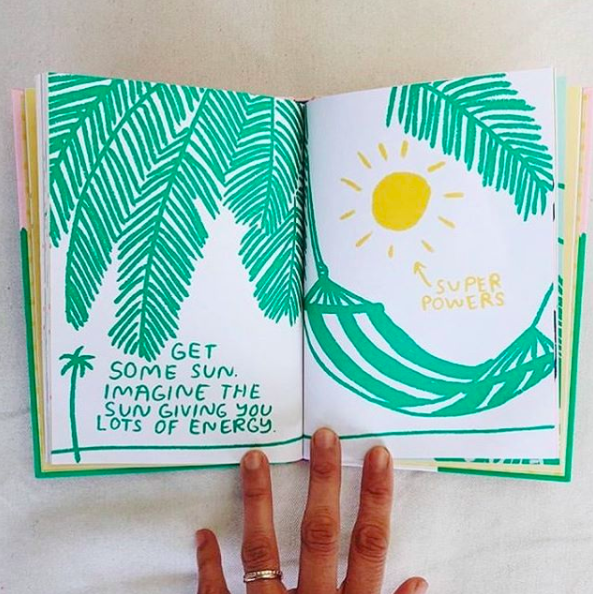 GET
SOME SUN.
IMAGINE THE
SUN GIVING YOU
LOTS OF ENERGY.
SUPER
POWERS